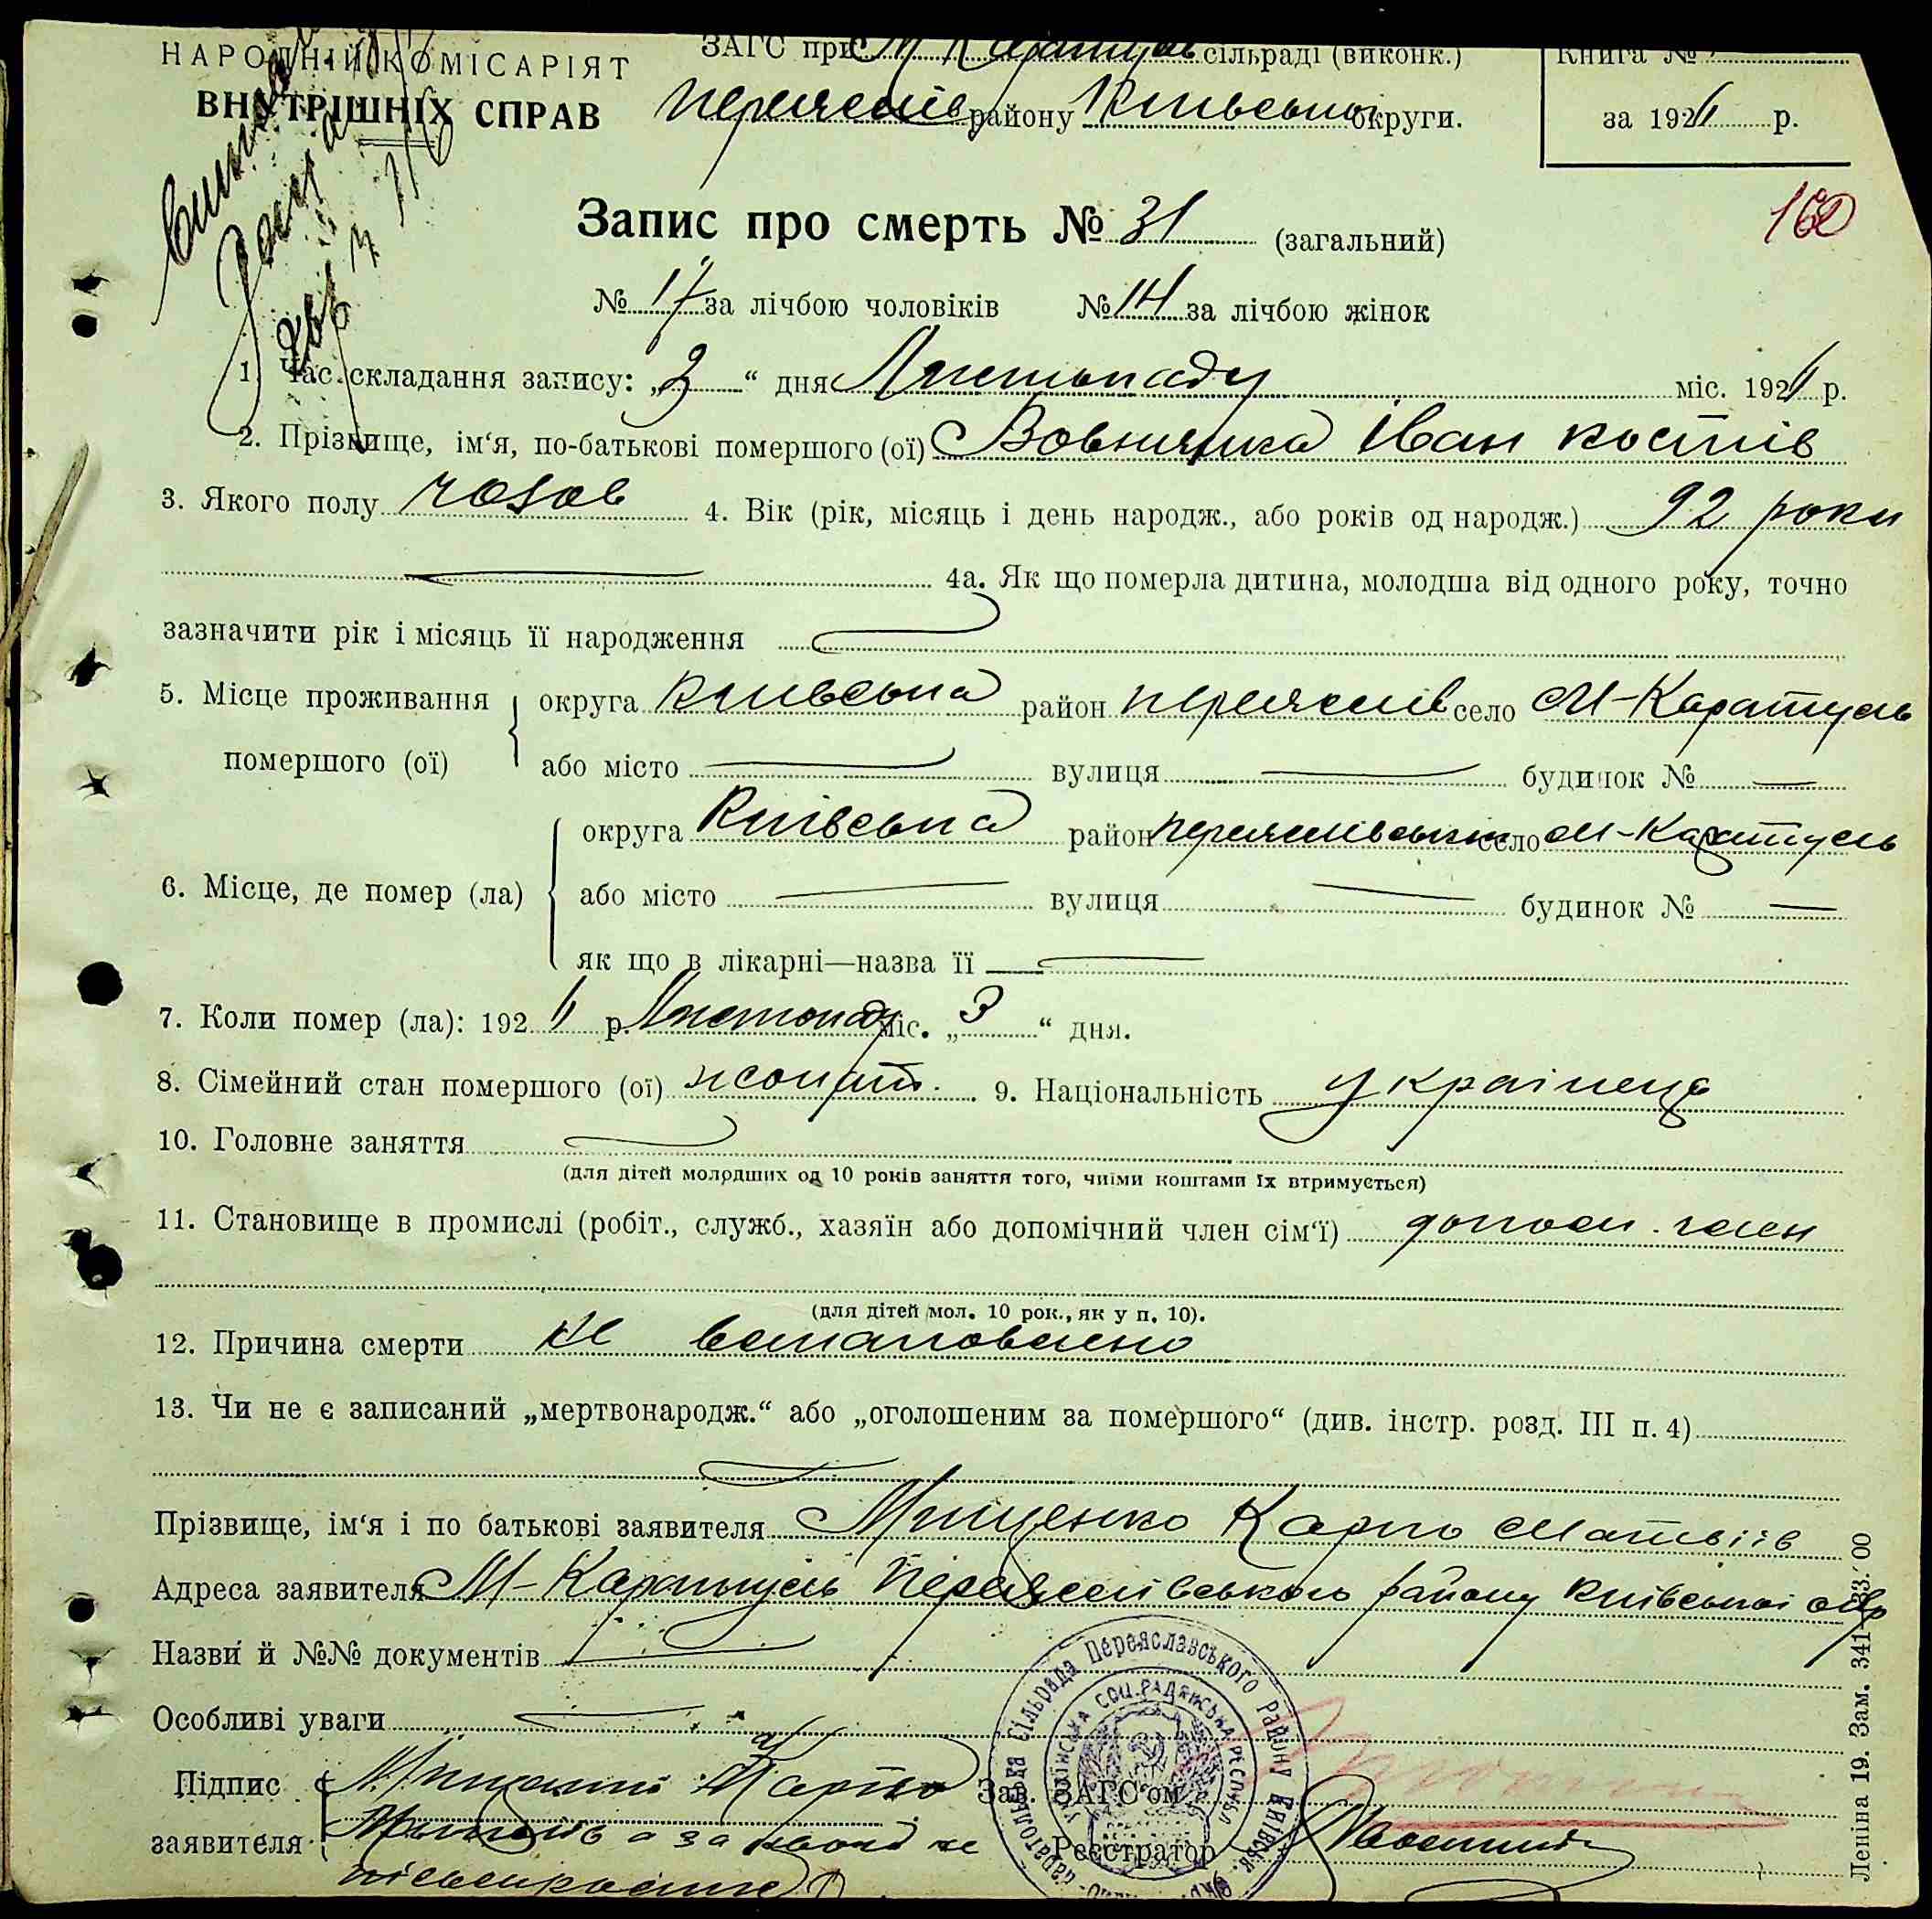 НАРОДНІЙ КОМІСАРІЯТ
ВНУТРІШНІХ СПРАВ
ЗАГС при М Каратул сільраді (виконк.)
Переяслів району Київської округи.
Книга №
за 1926 р.
160
Запис про смерть № 31 (загальний)
№ 17 за лічбою чоловіків № 14 за лічбою жінок
1. Час складання запису: „3“ дня Листопаду міс. 1926 р.
2. Прізвище, ім‘я, по-батькові помершого (ої) Вовнянка Іван костів
3. Якого полу чолов 4. Вік (рік, місяць і день народж., або років од народж.) 92 роки
4а. Як що померла дитина, молодша від одного року, точно
зазначити рік і місяць її народження
5. Місце проживання помершого (ої) округа Київська район переяслів село М-Каратуль
або місто вулиця будинок №
6. Місце, де помер (ла) округа Київська район переяслівськ село М-Каратуль
або місто вулиця будинок №
як що в лікарні—назва її
7. Коли помер (ла): 1926 р. Листопаду міс. „3“ дня.
8. Сімейний стан помершого (ої) жонат. 9. Національність українець
10. Головне заняття
(для дітей молодших од 10 років заняття того, чиїми коштами їх втримується)
11. Становище в промислі (робіт., служб., хазяїн або допомічний член сім‘ї) допом. член
(для дітей мол. 10 рок., як у п. 10).
12. Причина смерти не встановлено
13. Чи не є записаний „мертвонародж.“ або „оголошеним за помершого“ (див. інстр. розд. III п. 4)
Прізвище, ім‘я і по батькові заявителя Мищенко Карпо Матвіїв
Адреса заявителя М-Каратуль Переяслівського району Київської окр
Назви й №№ документів
Особливі уваги
Підпис заявителя Карпо
а за
Зав. ЗАГС‘ом
Реєстратор
сільрада Переяславського Району Київськ.
УКРАЇНСЬКА СОЦ. РАДЯНСЬКА РЕСПУБЛ
Леніна 19. Зам. 341—33.000